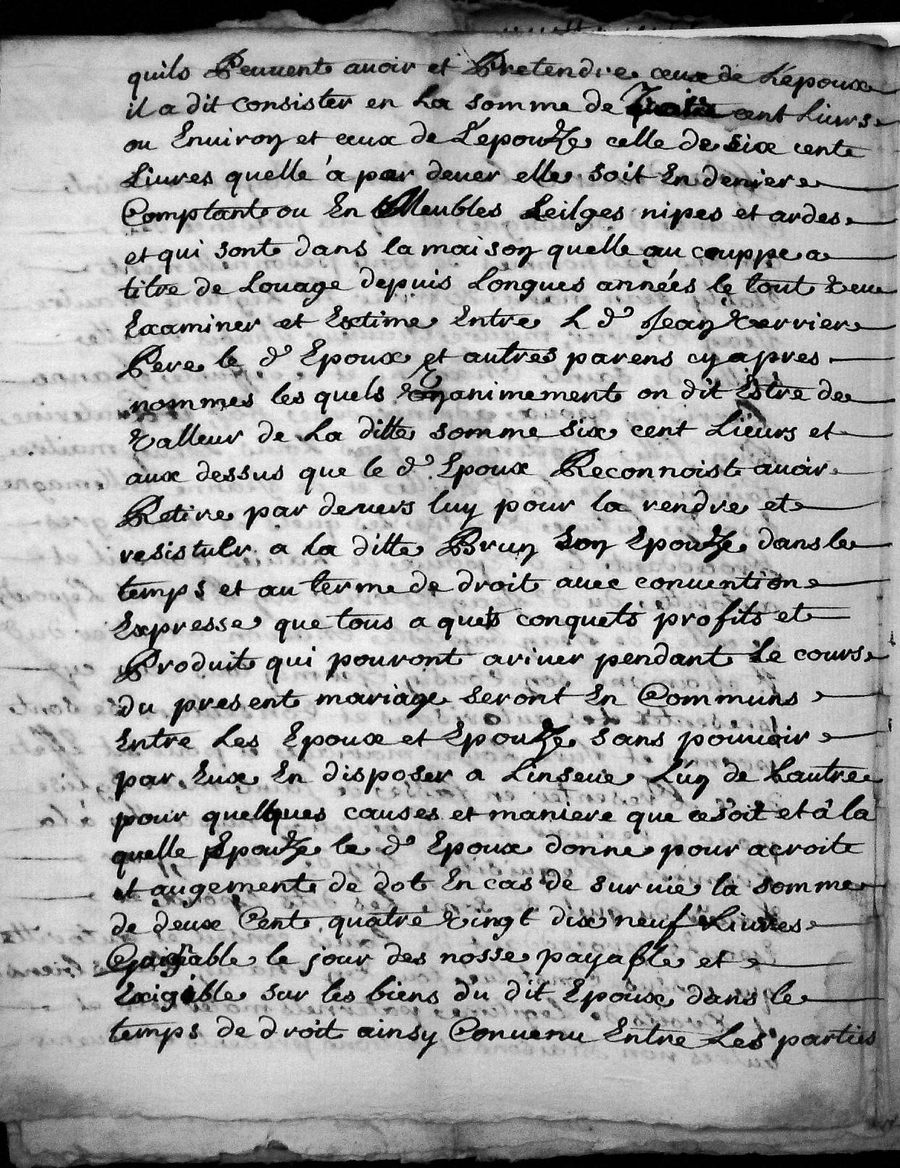 quils Peuuent auoir et Pretendre ceux de Lépoux
il a dit consister en La somme de cent Liurs
ou Enuiron et ceux de Lépouze celle de six cent
Liures quelle à par deuer elle soit En denier
Comptant ou En Meubles Leilges nipes et ardes
et qui sont dans la maison quelle au couppe a
titre de Louage depuis Longues années le tout veu
Examiner et Extime Entre L d.ᵗ Jean Verrier
Pere le d.ᵗ Epoux et autres parens cy apres
nommes les quels Vnanimement on dit Estre de
Valleur de La ditte somme six cent Lieurs et
aux dessus que le d.ᵗ Epoux Reconnoist auoir
Retire par deuers luy pour la rendre et
resistuer a la ditte Brun son Epouze dans le
temps et au terme de droit auec conuention
Expresse que tous a quets conquets profits et
Produit qui pouront ariuer pendant le cours
du present mariage seront En Communs
Entre Les Epoux et Epouze sans pouuoir
par Eux En disposer a Linseue Lún de Lautre
pour quelques causes et maniere que ce soit et à la
quelle Epouze le d.ᵗ Epoux donne pour acroit
et augement de dot En cas de suruie la somme
de deux Cent quatre vingt dix neuf Liures
Gaigable le jour des nosse payable et
Exigible sur les biens du dit Epoux dans le
temps de droit ainsy Conuenu Entre Les parties